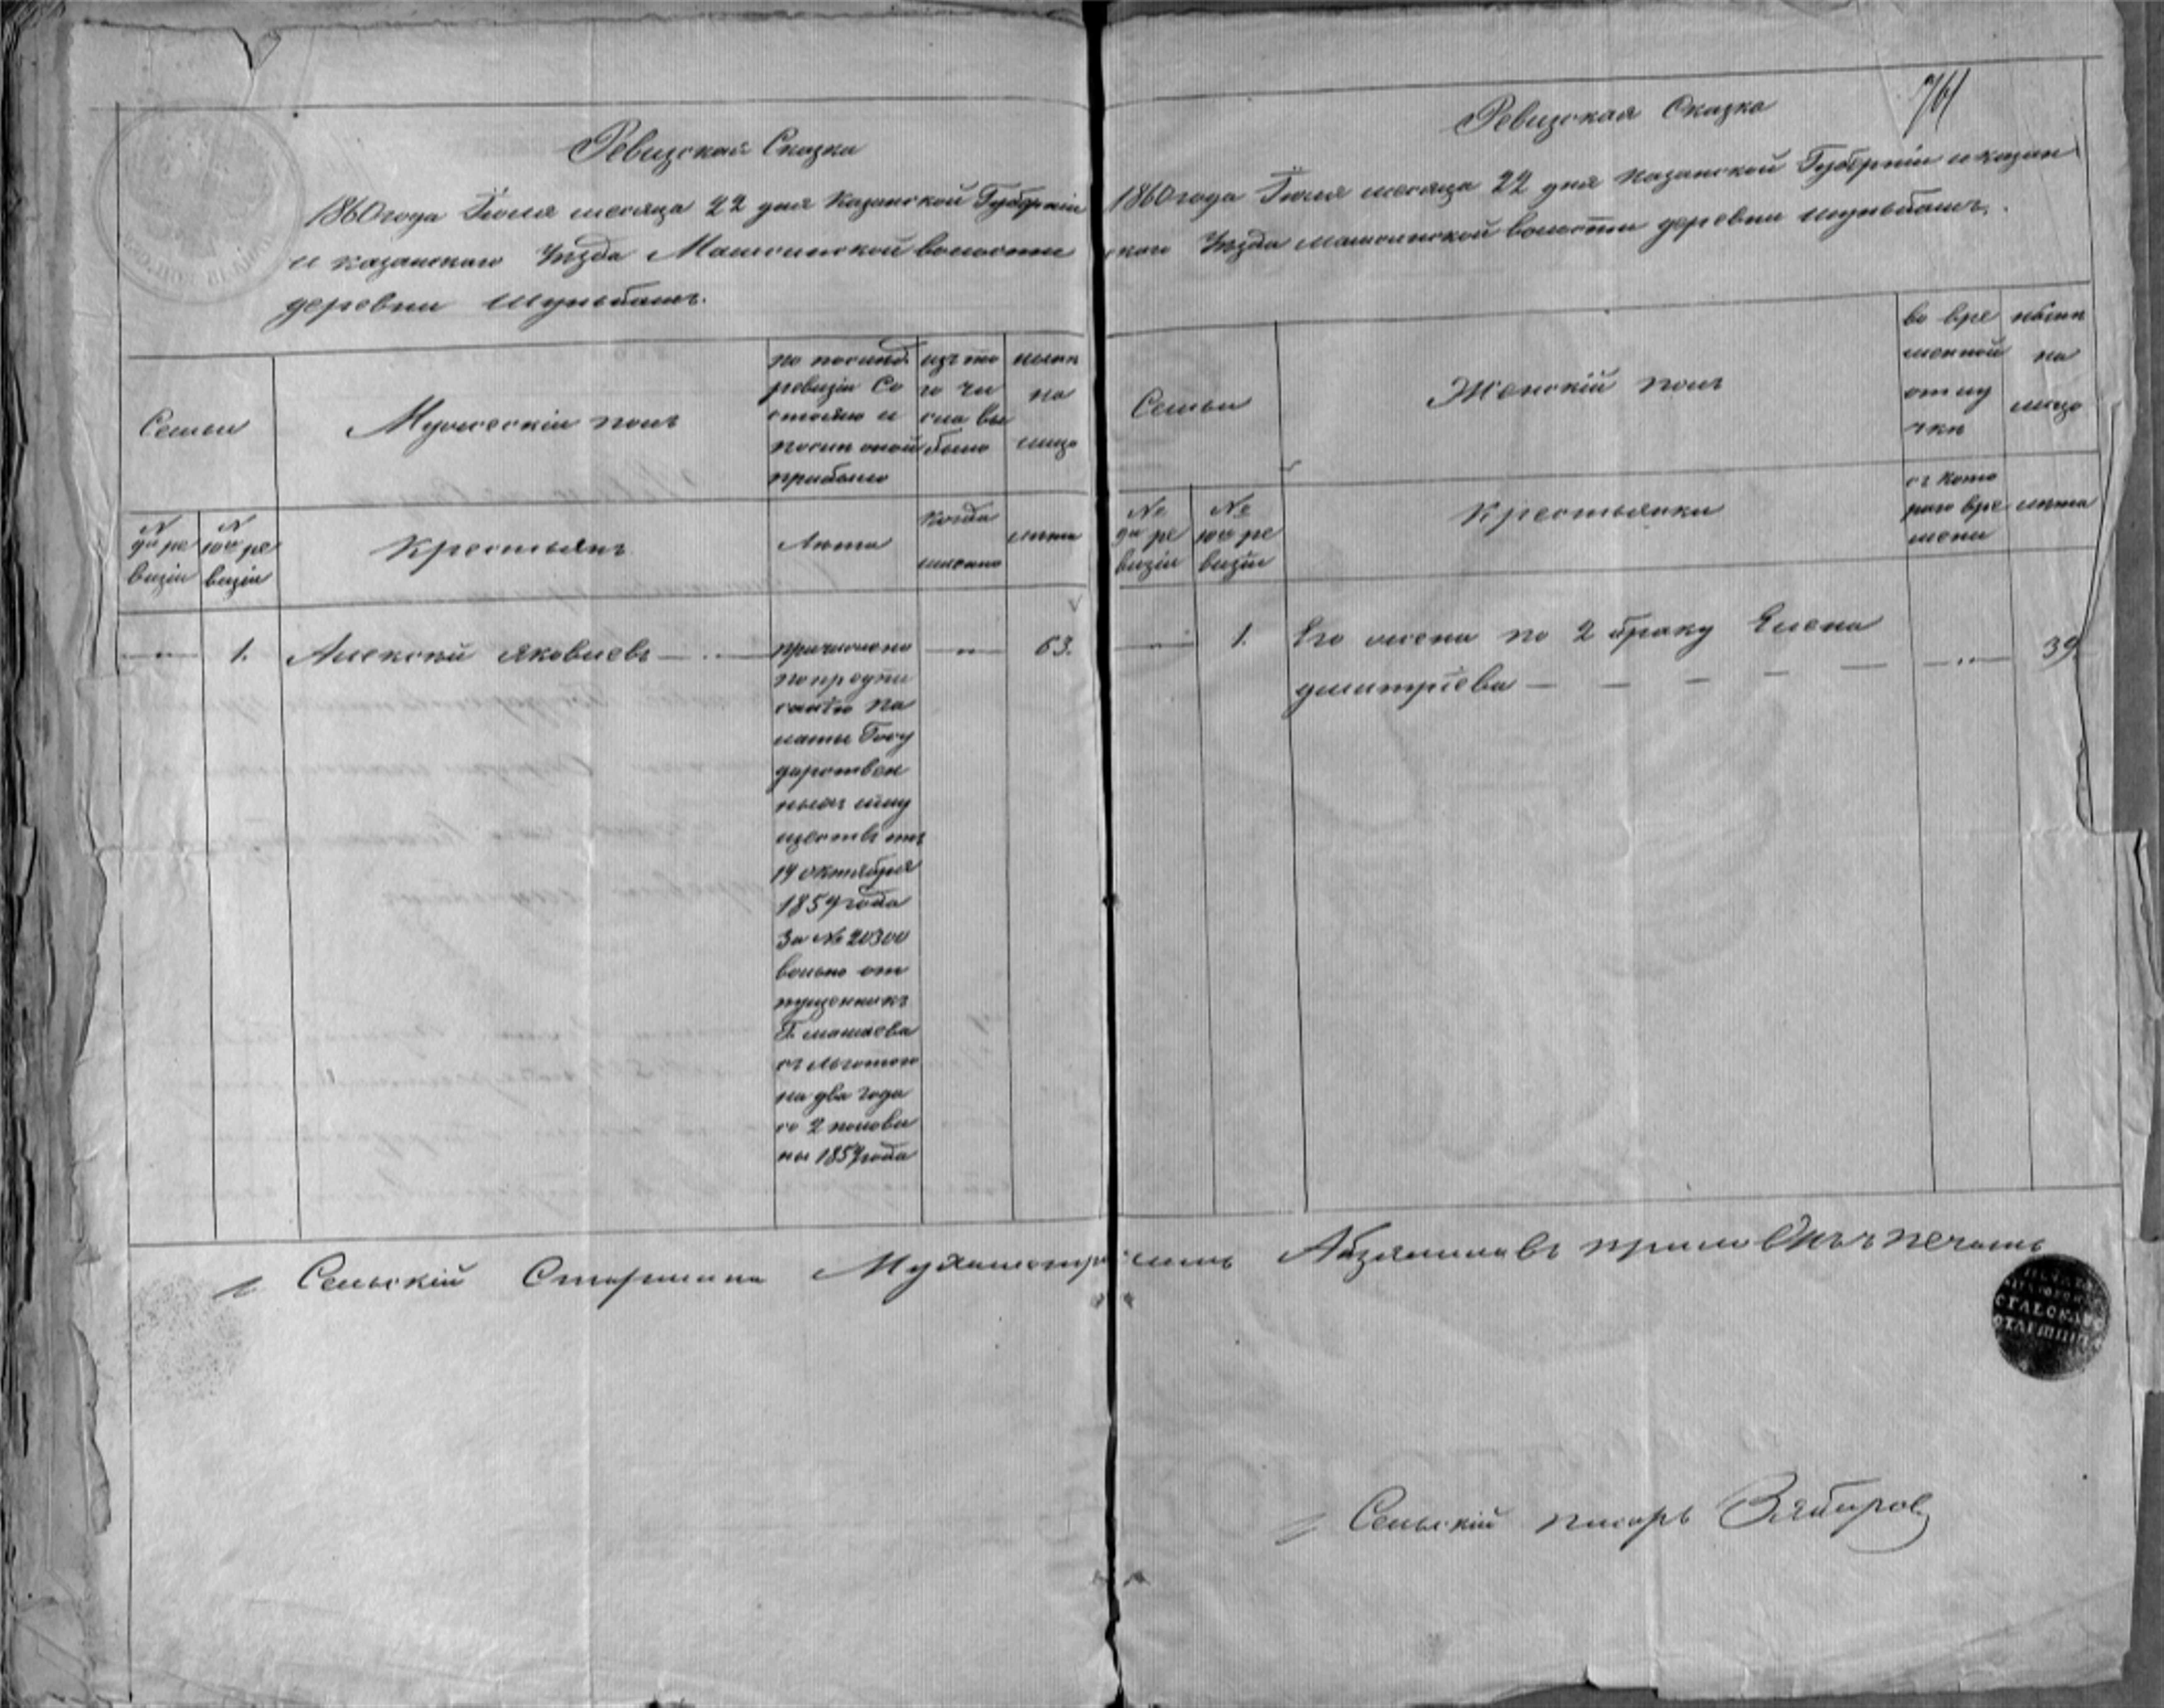 Ревизская Сказка
1860 года Июля месяца 22 дня Казанской Губерніи
и казанскаго Уѣзда Мамсинской волости
деревни Шуньбашъ.
Семьи
Мужескій полъ
по послѣд.
ревизіи Со
стояло и
послѣ оной
прибыло
изъ то
го чи
сла вы
было
нынѣ
на
лицо
№
9й ре
визіи
№
10й ре
визіи
Крестьянъ
Лѣта
Когда
именно
лѣта
1.
Алексѣй Яковлевъ
причислено
по предпи
санію Па
латы Госу
дарствен
ныхъ иму
ществъ отъ
14 октября
1857 года
За № 20300
вольно от
пущенникъ
Г.
съ льготою
на два года
со 2 полови
ны 1857 года
63.
Ревизская Сказка
761
1860 года Июля месяца 22 дня казанской Губерніи и казан
скаго Уѣзда мамсинской волости деревни шуньбашъ.
Семьи
Женскій полъ
во вре
менной
отлу
чкѣ
нынѣ
на
лицо
№
9й ре
визіи
№
10й ре
визіи
Крестьянки
съ кото
раго вре
мени
лѣта
1.
Его жена по 2 браку Елена
дмитріева
39.
Сельскій Старшина
печать
СЕЛЬСКАГО
СТАРШИНЫ
Сельскій писарь